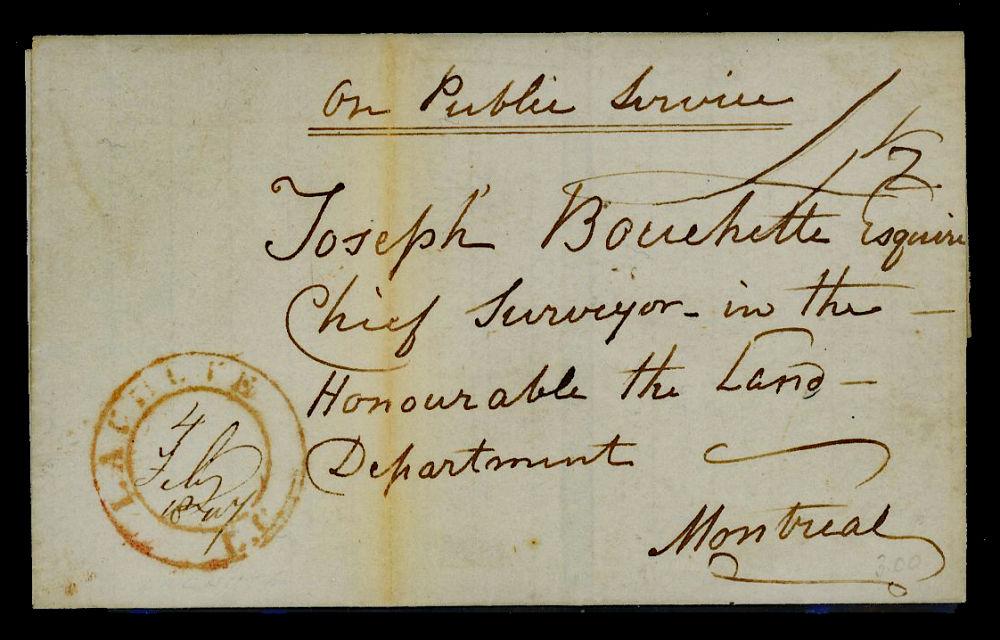 On Public Service
Joseph Bouchette Esquire
Chief Surveyor - in the -
Honourable the Land -
Department
Montreal
LACHUTE
L.C.
4
Feby
1847
3.00